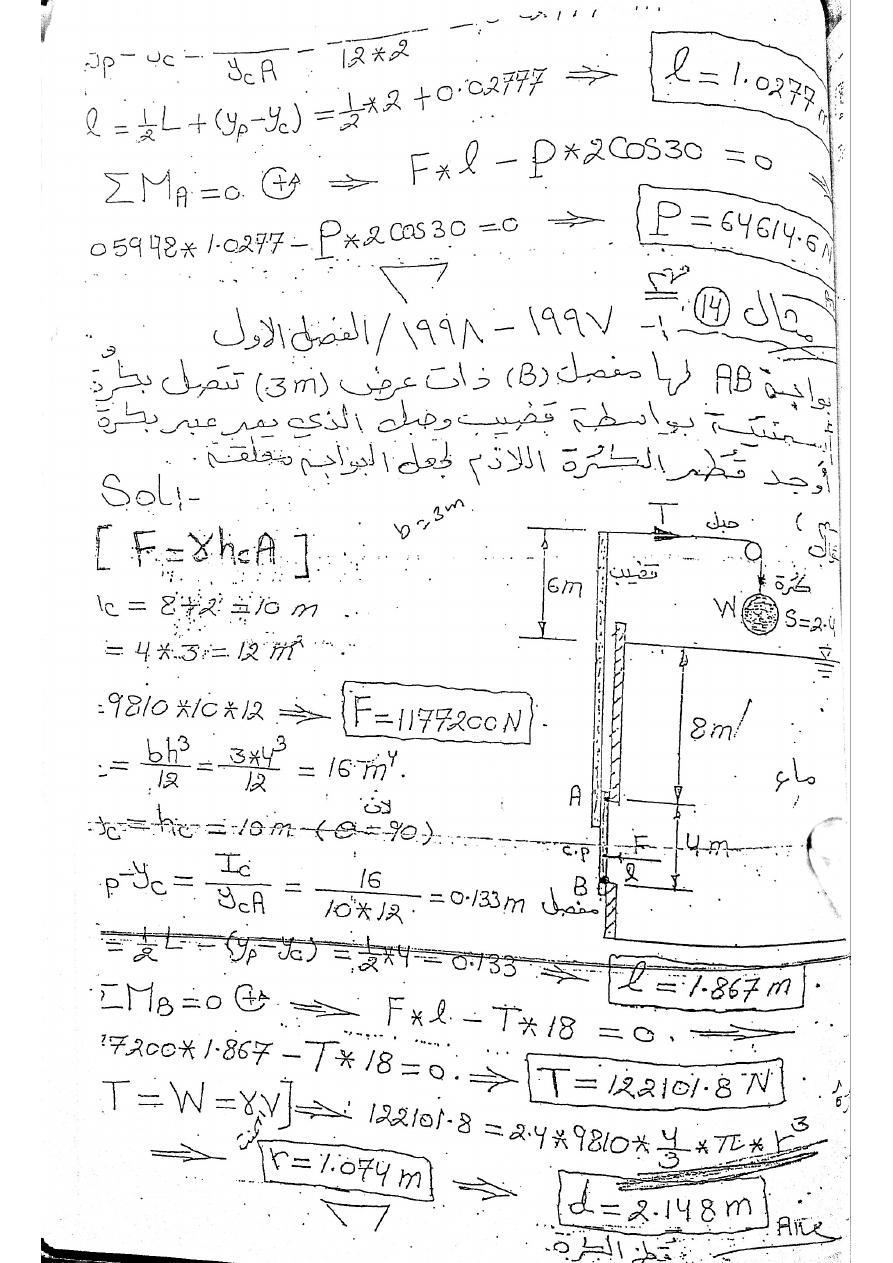 yp - yc = / ycA = / 12*2
l = 1/2 L + (yp - yc) = 1/2 * 2 + 0.02777 ⇒ l = 1.0277 m
ΣMA = 0 ⇒ F * l - P * 2 cos 30 = 0
05948 * 1.0277 - P * 2 cos 30 = 0 ⇒ P = 64614.6 N
مثال (14) :- ١٩٩٧ - ١٩٩٨ / الفصل الاول
بوابة AB لها مفصل (B) ذات عرض (3m) تتصل بكرة
إسمنتية بواسطة قضيب وحبل الذي يمر عبر بكرة
أوجد قطر الكرة اللازم لجعل البوابة مغلقة.
Sol:-
b = 3m
[ F = γ hc A ]
hc = 8 + 2 = 10 m
= 4 * 3 = 12 m²
= 9810 * 10 * 12 ⇒ F = 1177200 N
= bh³/12 = 3*4³/12 = 16 m⁴.
yc = hc = 10 m (θ = 90) لان
p - yc = Ic / ycA = 16 / 10*12 = 0.133 m
= 1/2 L - (yp - yc) = 1/2 * 4 - 0.133 ⇒ l = 1.867 m
ΣMB = 0 ⇒ F * l - T * 18 = 0 ⇒
77200 * 1.867 - T * 18 = 0. ⇒ T = 122101.8 N
T = W = γV ] ⇒ 122101.8 = 2.4 * 9810 * 4/3 * π * r³
⇒ r = 1.074 m ⇒ d = 2.148 m
قطر الكرة
T
حبل
6m
قضيب
كرة
W
S = 2.4
8m
ماء
A
4m
F
c.p
l
B
مفصل